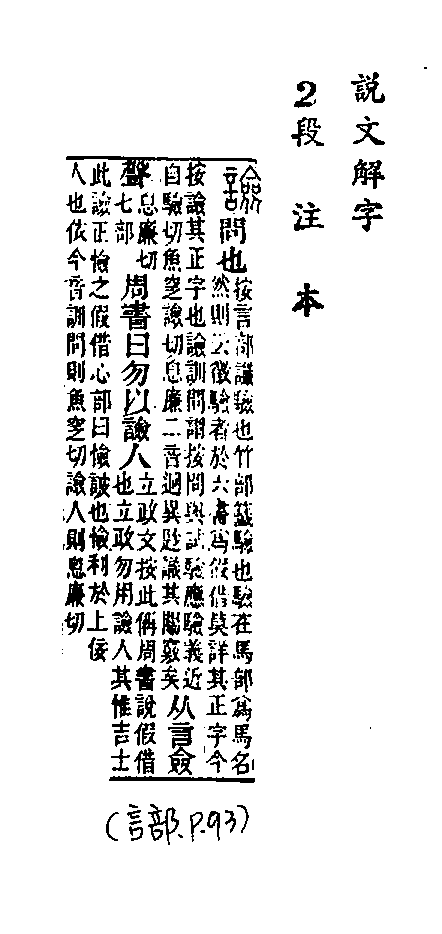 説文解字
2段注本
譣問也
按言部讖驗也竹部籤驗也驗在馬部爲馬名
然則云徵驗者於六書爲假借莫詳其正字今
按譣其正字也譣訓問謂按問與試驗應驗義近
自驗切魚窆譣切息廉二音迥異尟識其關竅矣
从言僉
聲
息廉切
七部
周書曰勿以譣人
立政文按此偁周書說假借
也立政勿用譣人其惟吉士
此譣正憸之假借心部曰憸詖也憸利於上佞
人也依今音訓問則魚窆切譣人則息廉切
(言部.P.93)